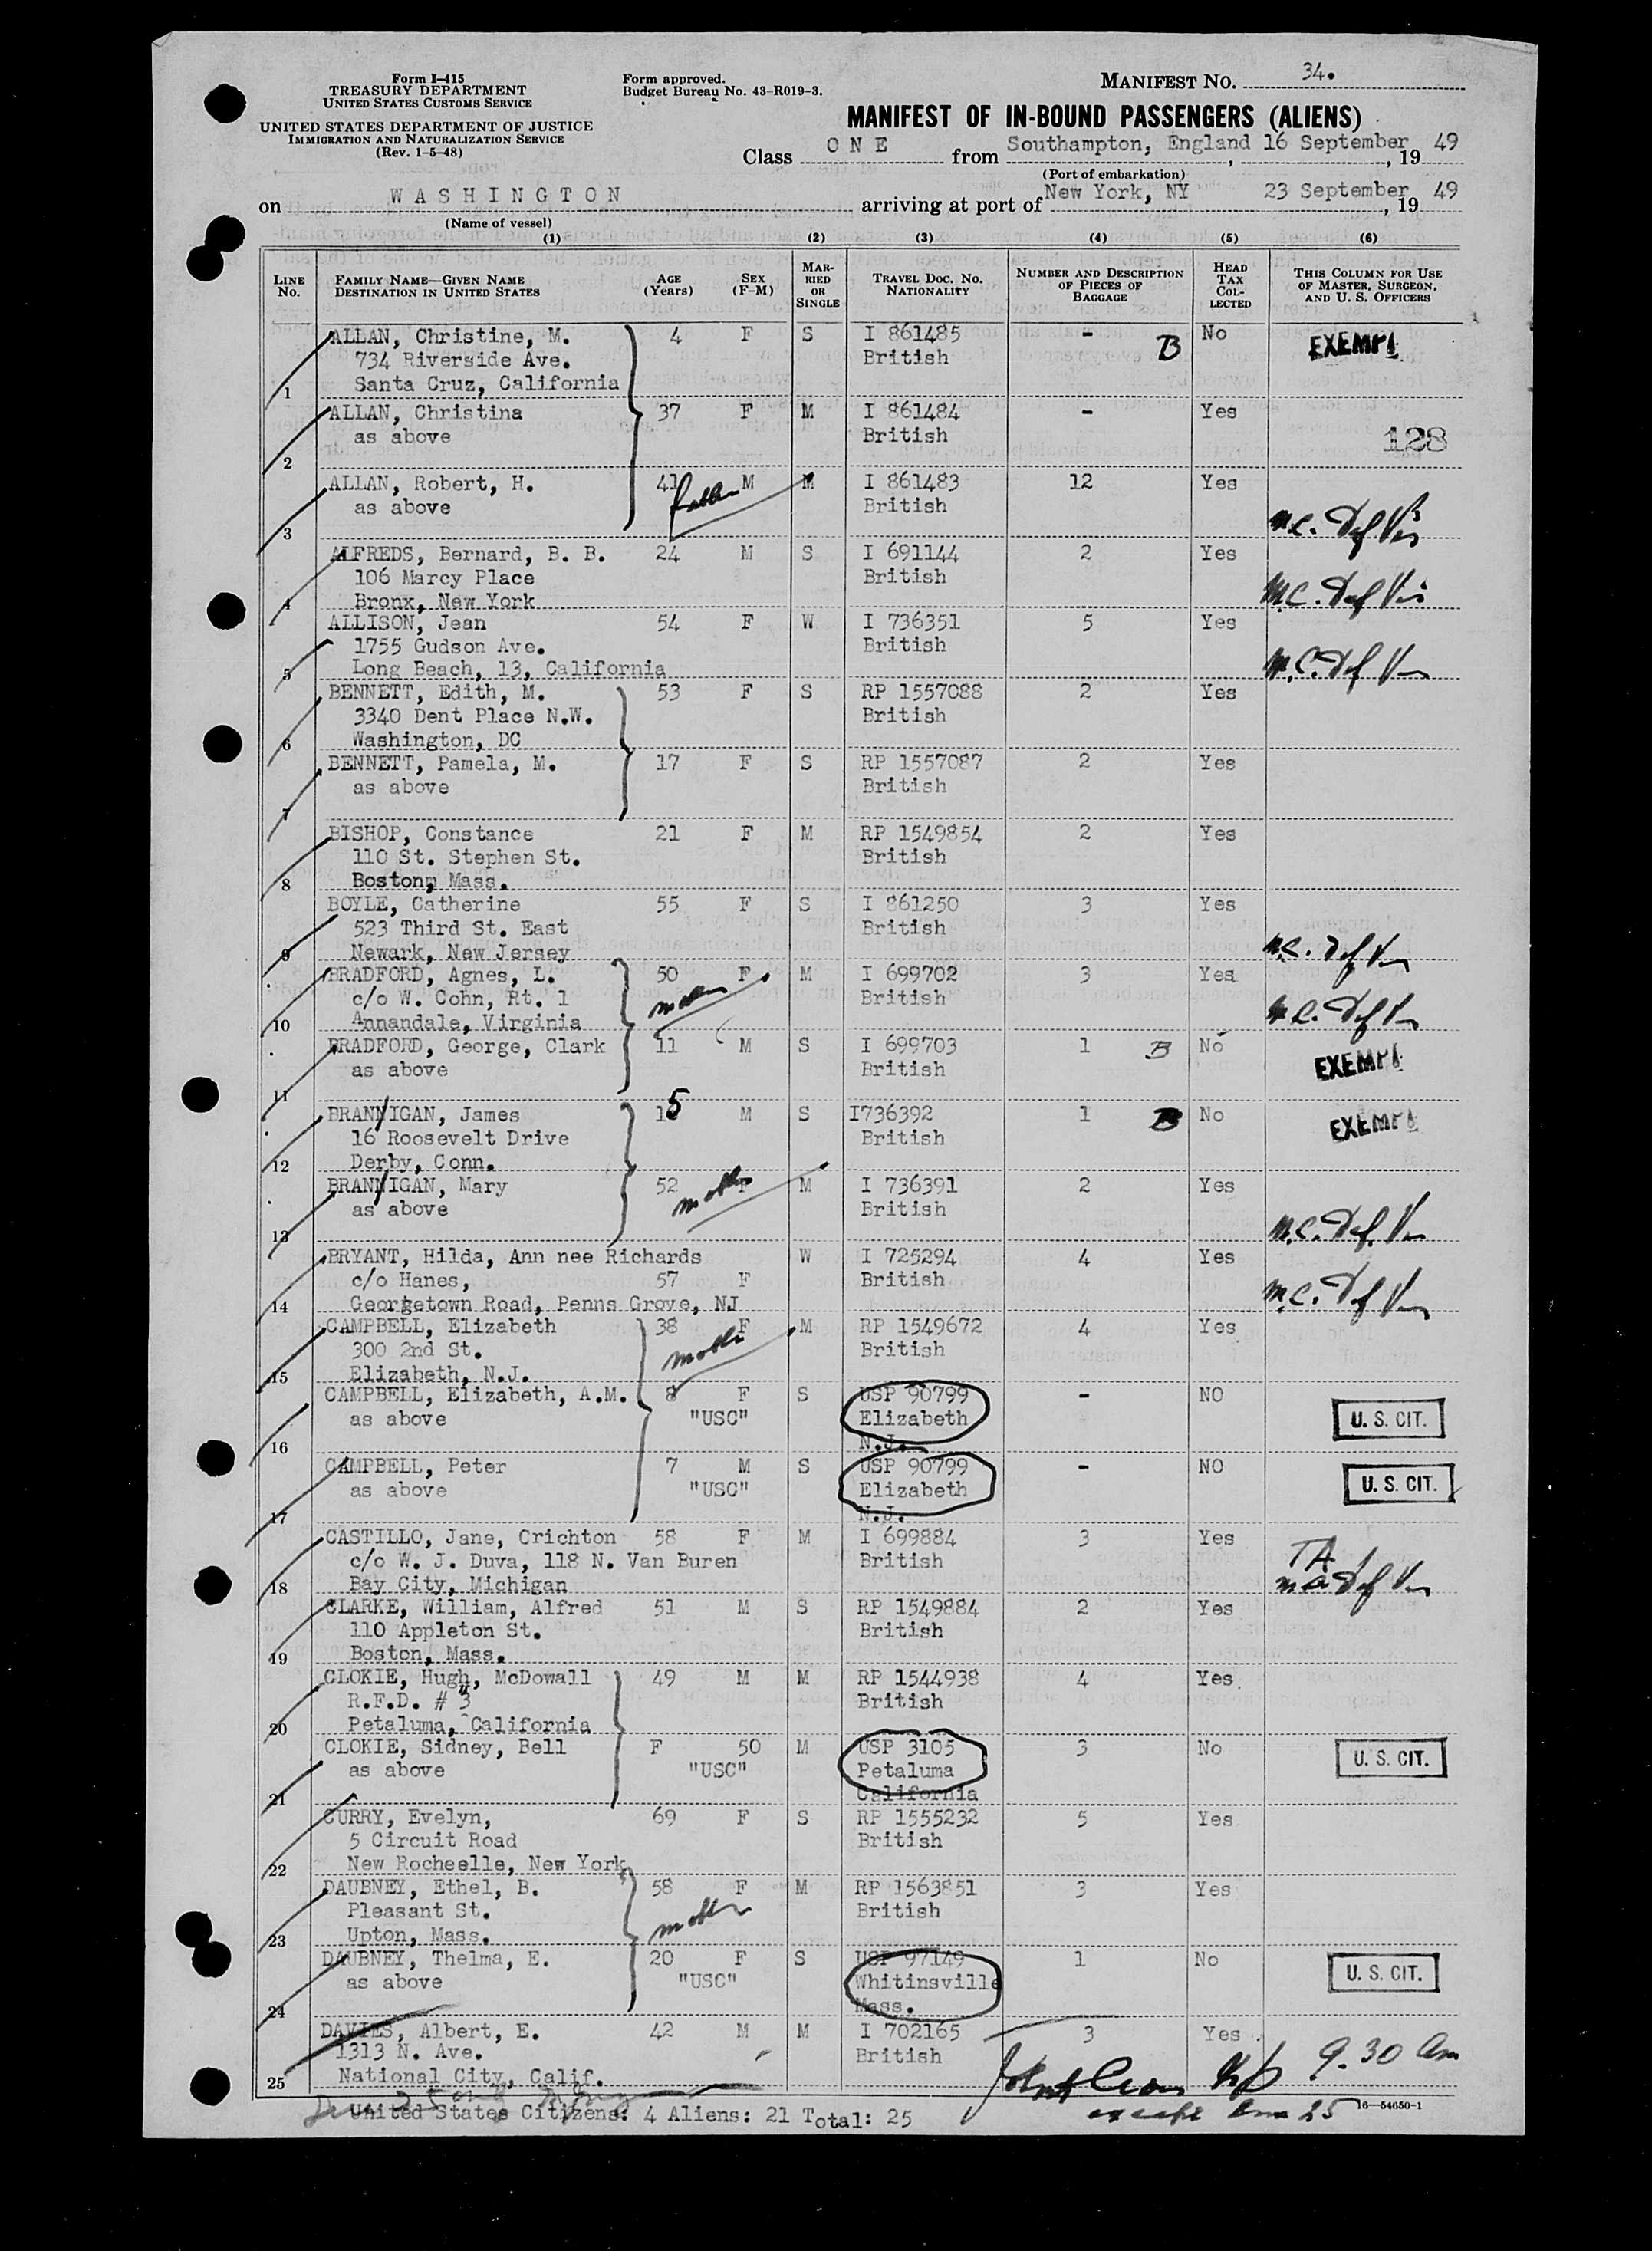 Form I-415
TREASURY DEPARTMENT
UNITED STATES CUSTOMS SERVICE
UNITED STATES DEPARTMENT OF JUSTICE
IMMIGRATION AND NATURALIZATION SERVICE
(Rev. 1-5-48)
Form approved.
Budget Bureau No. 43-R019-3.
MANIFEST NO. 34.
MANIFEST OF IN-BOUND PASSENGERS (ALIENS)
Class O N E from Southampton, England 16 September, 19 49
(Port of embarkation)
on W A S H I N G T O N arriving at port of New York, NY 23 September, 19 49
(Name of vessel)
(1) (2) (3) (4) (5) (6)
LINE No. FAMILY NAME—GIVEN NAME DESTINATION IN UNITED STATES AGE (Years) SEX (F-M) MARRIED OR SINGLE TRAVEL DOC. NO. NATIONALITY NUMBER AND DESCRIPTION OF PIECES OF BAGGAGE HEAD TAX COLLECTED THIS COLUMN FOR USE OF MASTER, SURGEON, AND U. S. OFFICERS
ALLAN, Christine, M. 4 F S I 861485 - B No EXEMPT
734 Riverside Ave. British
1 Santa Cruz, California
ALLAN, Christina 37 F M I 861484 - Yes
as above British 128
2
ALLAN, Robert, H. 41 father M M I 861483 12 Yes
as above British
3
ALFREDS, Bernard, B. B. 24 M S I 691144 2 Yes
106 Marcy Place British
4 Bronx, New York
ALLISON, Jean 54 F W I 736351 5 Yes
1755 Gudson Ave. British
5 Long Beach, 13, California
BENNETT, Edith, M. 53 F S RP 1557088 2 Yes
3340 Dent Place N.W. British
6 Washington, DC
BENNETT, Pamela, M. 17 F S RP 1557087 2 Yes
as above British
7
BISHOP, Constance 21 F M RP 1549854 2 Yes
110 St. Stephen St. British
8 Boston, Mass.
BOYLE, Catherine 55 F S I 861250 3 Yes
523 Third St. East British
9 Newark, New Jersey
BRADFORD, Agnes, L. 50 F M I 699702 3 Yes
c/o W. Cohn, Rt. 1 mother British
10 Annandale, Virginia
BRADFORD, George, Clark 11 M S I 699703 1 B No
as above British EXEMPT
11
BRANNIGAN, James 15 M S I736392 1 B No EXEMPT
16 Roosevelt Drive British
12 Derby, Conn.
BRANNIGAN, Mary 52 mother F M I 736391 2 Yes
as above British
13
BRYANT, Hilda, Ann nee Richards W I 725294 4 Yes
c/o Hanes, 57 F British
14 Georgetown Road, Penns Grove, NJ
CAMPBELL, Elizabeth 38 F M RP 1549672 4 Yes
300 2nd St. mother British
15 Elizabeth, N.J.
CAMPBELL, Elizabeth, A.M. 8 F S USP 90799 - NO
as above "USC" Elizabeth U. S. CIT.
16 N.J.
CAMPBELL, Peter 7 M S USP 90799 - NO
as above "USC" Elizabeth U. S. CIT.
17 N.J.
CASTILLO, Jane, Crichton 58 F M I 699884 3 Yes
c/o W. J. Duva, 118 N. Van Buren British TA
18 Bay City, Michigan
CLARKE, William, Alfred 51 M S RP 1549884 2 Yes
110 Appleton St. British
19 Boston, Mass.
CLOKIE, Hugh, McDowall 49 M M RP 1544938 4 Yes
R.F.D. # 3 British
20 Petaluma, California
CLOKIE, Sidney, Bell F 50 M USP 3105 3 No
as above "USC" Petaluma U. S. CIT.
21 California
CURRY, Evelyn, 69 F S RP 1555232 5 Yes
5 Circuit Road British
22 New Rocheelle, New York
DAUBNEY, Ethel, B. 58 F M RP 1563851 3 Yes
Pleasant St. mother British
23 Upton, Mass.
DAUBNEY, Thelma, E. 20 F S USP 97149 1 No
as above "USC" Whitinsville U. S. CIT.
24 Mass.
DAVIES, Albert, E. 42 M M I 702165 3 Yes
1313 N. Ave. British 9.30 am
25 National City, Calif.
United States Citizens: 4 Aliens: 21 Total: 25
except line 25
16—54650-1